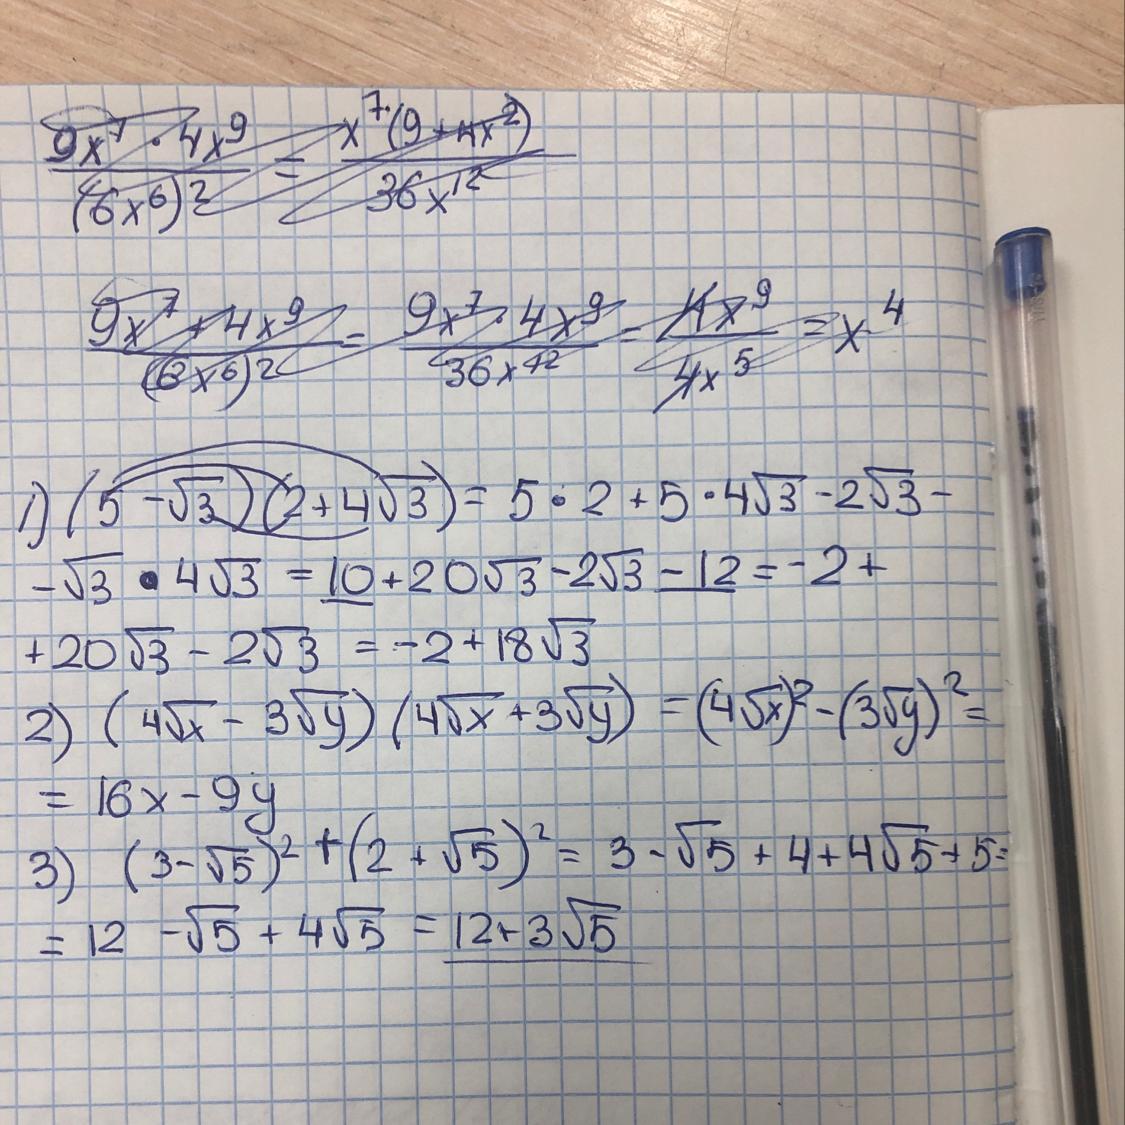 9x⁷ · 4x⁹ / (6x⁶)² = x⁷(9 + 4x²) / 36x¹²
9x⁷ + 4x⁹ / (6x⁶)² = 9x⁷ · 4x⁹ / 36x¹² = 4x⁹ / 4x⁵ = x⁴
1) (5 - √3)(2 + 4√3) = 5 · 2 + 5 · 4√3 - 2√3 -
- √3 · 4√3 = 10 + 20√3 - 2√3 - 12 = -2 +
+ 20√3 - 2√3 = -2 + 18√3
2) (4√x - 3√y)(4√x + 3√y) = (4√x)² - (3√y)² =
= 16x - 9y
3) (3 - √5)² + (2 + √5)² = 3 - √5 + 4 + 4√5 + 5 =
= 12 - √5 + 4√5 = 12 + 3√5